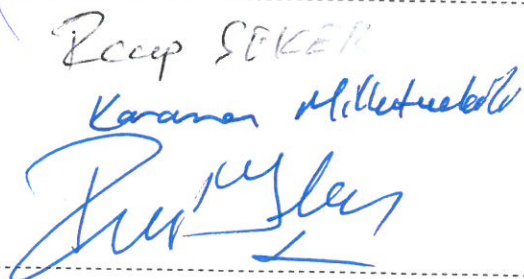 Recep ŞEKER
Karaman Milletvekili